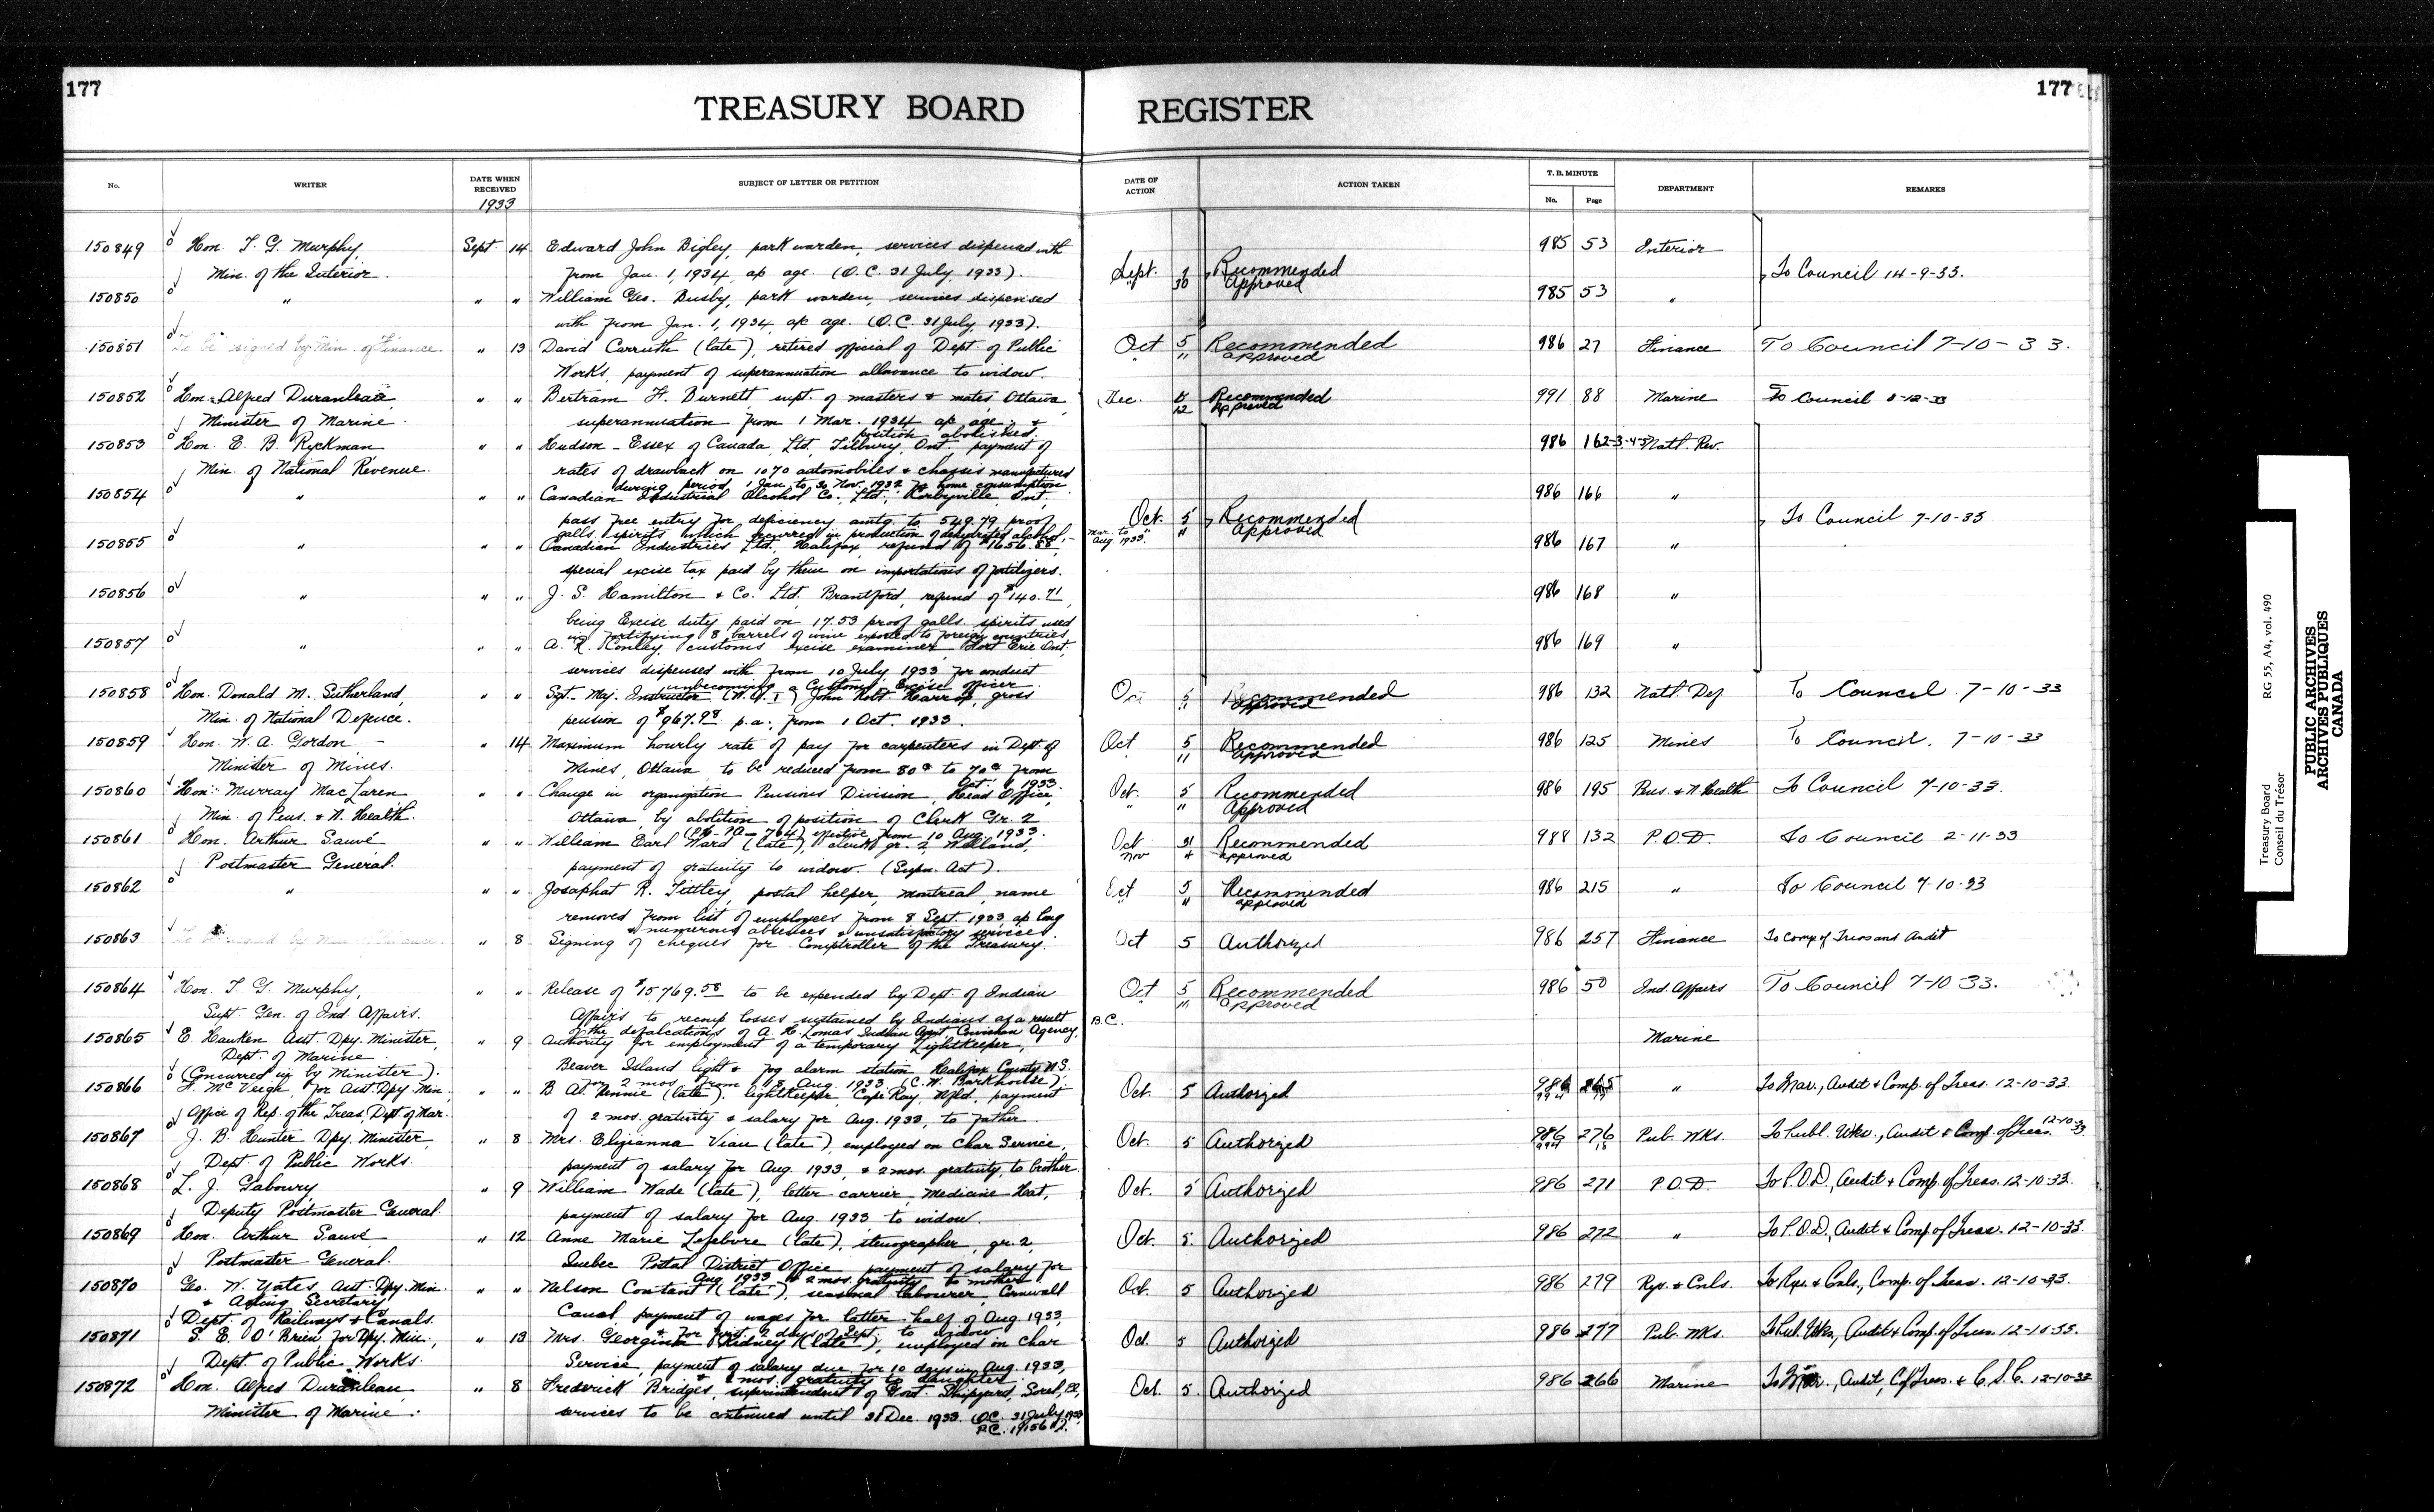 177
177
TREASURY BOARD REGISTER
No.
WRITER
DATE WHEN RECEIVED
1933
SUBJECT OF LETTER OR PETITION
DATE OF ACTION
ACTION TAKEN
T. B. MINUTE
No.
Page
DEPARTMENT
REMARKS
150849 Hon. T. G. Murphy, Sept. 14 Edward John Bigley, park warden, services dispensed with 985 53 Interior
Min. of the Interior. from Jan. 1, 1934, a/c age. (O.C. 31 July, 1933). Sept. Recommended To Council 14-9-33.
Approved
150850 " " " William Geo. Busby, park warden, services dispensed 985 53 "
with from Jan. 1, 1934, a/c age. (O.C. 31 July, 1933).
150851 To be signed by Min. of Finance. " 13 David Carruth (late), retired official of Dept. of Public Oct 5 Recommended 986 27 Finance To Council 7-10-33.
Works, payment of superannuation allowance to widow. " " approved
150852 Hon. Alfred Duranleau " " Bertram H. Burnett supt. of masters & mates Ottawa, Dec. Recommended 991 88 Marine To Council
Minister of Marine. superannuation from 1 Mar. 1934 a/c age & 12 Approved
position abolished
150853 Hon. E. B. Ryckman " " Hudson-Essex of Canada, Ltd. Tilbury, Ont., payment of 986 162-3-4-5 Natl. Rev.
Min. of National Revenue. rates of drawback on 1070 automobiles & chassis manufactured
during period 1 Jan. to 30 Nov. 1932 for home consumption
150854 " " " Canadian Industrial Alcohol Co., Ltd. Corbyville, Ont. 986 166 "
pass free entry for deficiency amtg. to 549.79 proof Oct. 5 Recommended To Council 7-10-33
galls. spirits which occurred in production of dehydrated alcohol, Mar. to Aug. 1933. " Approved
150855 " " " Canadian Industries Ltd., Halifax, refund of $1656.88, 986 167 "
special excise tax paid by them on importations of fertilizers.
150856 " " " J. S. Hamilton & Co. Ltd. Brantford, refund of $140.71, 986 168 "
being Excise duty paid on 17.53 proof galls. spirits used
in fortifying 8 barrels of wine exported to foreign countries,
150857 " " " A. R. Conley, customs excise examiner, Fort Erie Ont., 986 169 "
services dispensed with from 10 July, 1933 for conduct
unbecoming a Customs Excise officer
150858 Hon. Donald M. Sutherland, " " Sgt.-Maj. Instructor John Holt gross Oct 5 Recommended 986 132 Natl. Def To Council. 7-10-33
Min. of National Defence. pension of $967.98 p.a., from 1 Oct. 1933. " approved
150859 Hon. W. A. Gordon, " 14 Maximum hourly rate of pay for carpenters in Dept. of Oct 5 Recommended 986 125 Mines To Council. 7-10-33
Minister of Mines. Mines, Ottawa, to be reduced from 80¢ to 70¢ from 11 Approved
Oct. 1 1933
150860 Hon. Murray MacLaren " " Change in organization Pensions Division, Head Office, Oct. 5 Recommended 986 195 Pens. & N. Health To Council 7-10-33.
Min. of Pens. & N. Health. Ottawa by abolition of position of Clerk Gr. 2 " " Approved
effective from 10 Aug. 1933.
150861 Hon. Arthur Sauvé " " William Earl Ward (late) clerk gr. 2 Welland, Oct 31 Recommended 988 132 P.O.D. To Council 2-11-33
Postmaster General. payment of gratuity to widow. (Supn. Act). Nov 4 approved
150862 " " " Josaphat R. Tittley, postal helper, Montreal, name Oct 5 Recommended 986 215 " To Council 7-10-33
removed from list of employees from 8 Sept. 1933 a/c long " " approved
& numerous absences & unsatisfactory services.
150863 To be signed by Min. of Finance " 8 Signing of cheques for Comptroller of the Treasury. Oct 5 Authorized 986 257 Finance To Comp of Treas and Audit
150864 Hon. T. G. Murphy, " " Release of $15,769.58 to be expended by Dept. of Indian Oct 5 Recommended 986 50 Ind. Affairs To Council 7-10-33.
Supt. Gen. of Ind. Affairs. Affairs to recoup losses sustained by Indians as a result 11 approved
of the defalcations of A. H. Lomas Indian Agent Cowichan Agency, B.C.
150865 E. Hawken Asst. Dpy. Minister, " 9 Authority for employment of a temporary Lightkeeper, Marine
Dept. of Marine Beaver Island light & fog alarm station Halifax County N.S.
(Concurred in by Minister). for 2 mos. from Aug. 1933 (C. W. Barkhouse).
150866 F. McVeigh, for Asst. Dpy. Min., " " B A. Rennie (late), lightkeeper, Cape Ray, Nfld., payment Oct. 5 Authorized 986 265 " To Mar., Audit & Comp. of Treas. 12-10-33.
Office of Rep. of the Treas. Dept of Mar. of 2 mos. gratuity & salary for Aug. 1933, to father
150867 J. B. Hunter Dpy. Minister, " 8 Mrs. Elizianna Viau (late), employed on Char Service, Oct. 5 Authorized 986 276 Pub. Wks. To Publ. Wks., Audit & Comp. of Treas. 12-10-33
Dept. of Public Works. payment of salary for Aug. 1933, & 2 mos. gratuity, to brother.
150868 L. J. Gaboury, " 9 William Wade (late), letter carrier, Medicine Hat, Oct. 5 Authorized 986 271 P.O.D. To P.O.D., Audit & Comp. of Treas. 12-10-33.
Deputy Postmaster General. payment of salary for Aug. 1933 to widow.
150869 Hon. Arthur Sauvé " 12 Anne Marie Lefebvre (late), stenographer, gr. 2, Oct. 5. Authorized 986 272 " To P.O.D., Audit & Comp. of Treas. 12-10-33.
Postmaster General. Quebec Postal District Office payment of salary for
Aug. 1933 & 2 mos. gratuity to mother
150870 Geo. W. Yates, Asst. Dpy. Min. " " Nelson Constant (late), seasonal labourer, Cornwall Oct. 5 Authorized 986 279 Rys. & Cnls. To Rys. & Cnls., Comp. of Treas. 12-10-33.
& Acting Secretary Canal, payment of wages for latter half of Aug. 1933,
Dept. of Railways & Canals. & for first 2 days of Sept. to widow
150871 S. E. O'Brien for Dpy. Min., " 13 Mrs. Georgina Kidney (late), employed in Char Oct. 5 Authorized 986 277 Pub. Wks. To Pub. Wks., Audit & Comp. of Treas. 12-10-33.
Dept. of Public Works. Service, payment of salary due for 10 days in Aug. 1933,
& 2 mos. gratuity to daughter.
150872 Hon. Alfred Duranleau " 8 Frederick Bridges, superintendent of Govt. Shipyard, Sorel, P.Q., Oct. 5. Authorized 986 266 Marine To Mar., Audit, C. of Treas. & C.S.C. 12-10-33
Minister of Marine. services to be continued until 31 Dec. 1933. (O.C. 31 July, 1933,
P.C.
Treasury Board RG 55, A4, vol. 490
Conseil du Trésor
PUBLIC ARCHIVES
ARCHIVES PUBLIQUES
CANADA